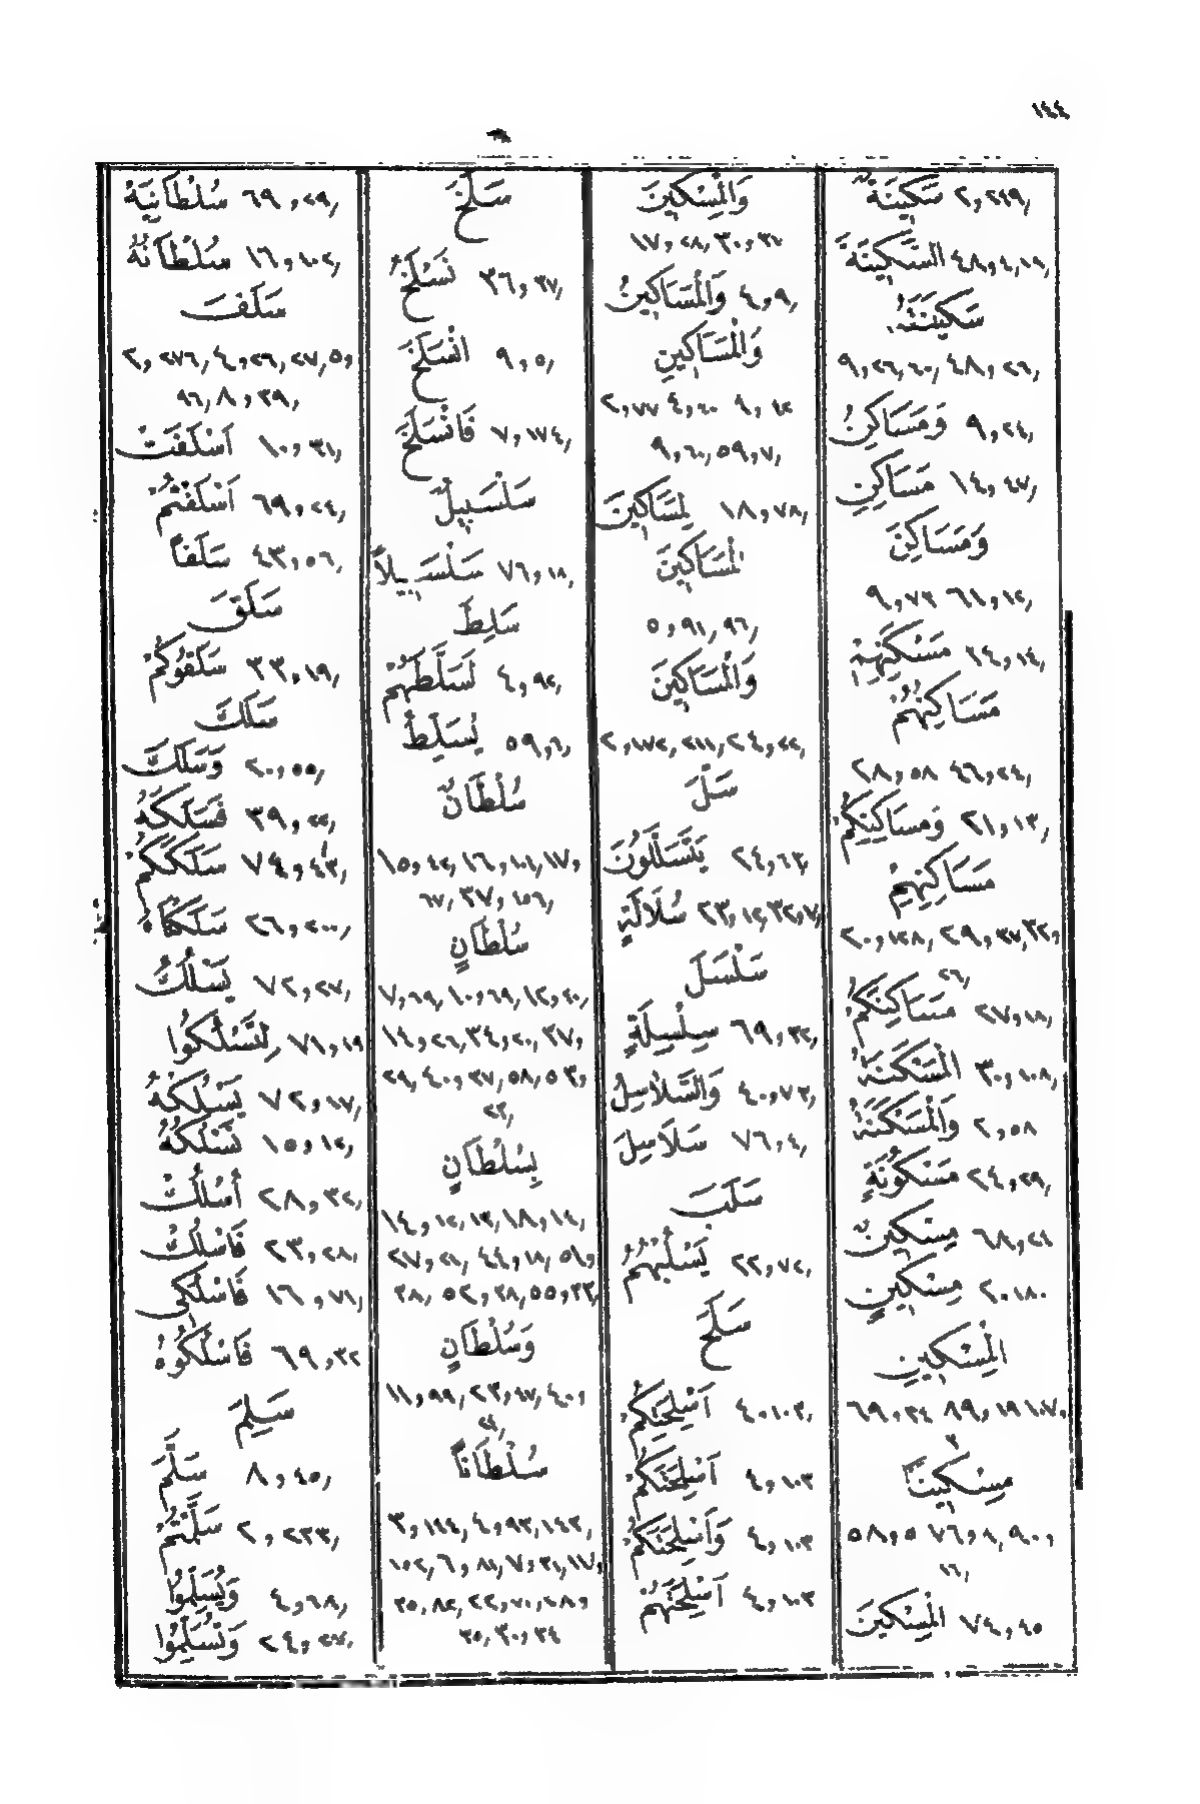 ١٤٤
سَكِينَةٌ ٢,٢٤٩,
السَّكِينَةَ ٤٨,٤,١٨,
سَكِينَتَهُ
٩,٢٦,٤٠, ٤٨,٢٦,
وَمَسَاكِنُ ٩,٢٤,
مَسَاكِنِ ١٤,٤٧,
وَمَسَاكِنَ
٩,٧٢ ٦١,١٢,
مَسْكَنِهِمْ ٢٤,١٤,
مَسَاكِنُهُمْ
٢٨,٥٨ ٤٦,٢٤,
وَمَسَاكِنِكُمْ ٢١,١٣,
مَسَاكِنِهِمْ
٢٠,١٢٨, ٢٩,٣٧,٣٢,
٢٦,
مَسَاكِنَكُمْ ٢٧,١٨,
الْمَسْكَنَةُ ٣٠,١٠٨,
وَالْمَسْكَنَةُ ٢,٥٨
مَسْكُونَةٍ ٢٤,٢٩,
مِسْكِينٌ ٦٨,٢٤
مِسْكِينٍ ٢,١٨٠
الْمِسْكِينِ
٦٩,٣٤ ٨٩,١٩ ١٠٧,
٣
مِسْكِينًا
٥٨,٥ ٧٦,٨, ٩٠,
١٦,
الْمِسْكِينَ ٧٤,٤٥
وَالْمِسْكِينَ
١٧,٢٨, ٣٠,٣٧
وَالْمَسَاكِينُ ٤,٩,
وَالْمَسَاكِينِ
٢,٧٧ ٤,٤٠ ٩,٤٢
٩,٦٠, ٥٩,٧,
لِمَسَاكِينَ ١٨,٧٨,
الْمَسَاكِينَ
٥,٩١, ٩٦,
وَالْمَسَاكِينَ
٢,١٧٢, ٢١١, ٢٤,٢٢,
سَلَّ
يَتَسَلَّلُونَ ٢٤,٦٣,
سُلَالَةٍ ٢٣,١٢, ٣٢,٧,
سَلْسَلَ
سِلْسِلَةٍ ٦٩,٣٢,
وَالسَّلَاسِلُ ٤٠,٧٣,
سَلَاسِلَ ٧٦,٤,
سَلَبَ
يَسْلُبْهُمُ ٢٢,٧٢,
سَلَحَ
أَسْلِحَتِكُمْ ٤,١٠٢,
أَسْلِحَتَكُمْ ٤,١٠٣
وَأَسْلِحَتَكُمْ ٤,١٠٣
أَسْلِحَتَهُمْ ٤,١٠٣
سَلَخَ
نَسْلَخُ ٣٦,٣٧,
انْسَلَخَ ٩,٥,
فَانْسَلَخَ ٧,١٧٤,
سَلْسَبِيلٌ
سَلْسَبِيلاً ٧٦,١٨,
سَلِطَ
لَسَلَّطَهُمْ ٤,٩٢,
يُسَلِّطُ ٥٩,٦,
سُلْطَانٌ
١٥,٤٢, ١٦,١٠١, ١٧,
٦٧, ٣٧,١٥٦,
سُلْطَانٍ
٧,٦٩, ١٠,٦٩, ١٢,٤٠,
١٤,٢٦, ٣٤,٢٠, ٣٧,
٢٩, ٤٠,٣٧, ٥٨, ٥٣,
٢٣,
بِسُلْطَانٍ
١٤,١٢, ١٣, ١٨,١٤,
٢٧,٢١, ٤٤,١٨, ٥١,
٣٨, ٥٢,٣٨, ٥٥,٣٣,
وَسُلْطَانٍ
١١,٩٩, ٢٣,٤٧, ٤٠,
٢٤,
سُلْطَاناً
٣,١٤٤, ٤,٩٣, ١٤٣,
١٥٢, ٦,٨١, ٧,٣١, ١٧,
٣٥,٨٢, ٢٢,٧٠, ٢٨,
٣٥, ٣٠,٣٤
سُلْطَانِيَهْ ٦٩,٢٩,
سُلْطَانُهُ ١٦,١٠٢,
سَلَفَ
٢,٢٧٦, ٤,٢٦, ٢٧, ٥,
٩٦, ٨,٣٩,
أَسْلَفَتْ ١٠,٣١,
أَسْلَفْتُمْ ٦٩,٢٤,
سَلَفاً ٤٣,٥٦,
سَلَقَ
سَلَقُوكُمْ ٣٣,١٩,
سَلَكَ
وَسَلَكَ ٢٠,٥٥,
فَسَلَكَهُ ٣٩,٢٢,
سَلَكَكُمْ ٧٤,٤٣,
سَلَكْنَاهُ ٢٦,٢٠٠,
يَسْلُكُ ٧٢,٢٧,
لِتَسْلُكُوا ٧١,١٩
يَسْلُكْهُ ٧٢,١٧,
نَسْلُكُهُ ١٥,١٢,
أُسْلُكْ ٢٨,٣٢,
فَاسْلُكْ ٢٣,٢٨,
فَاسْلُكِي ١٦,٧١,
فَاسْلُكُوهُ ٦٩,٣٢
سَلِمَ
سَلَّمَ ٨,٤٥,
سَلَّمْتُمْ ٢,٢٣٣,
وَيُسَلِّمُوا ٤,٦٨,
وَتُسَلِّمُوا ٢٤,٢٧,